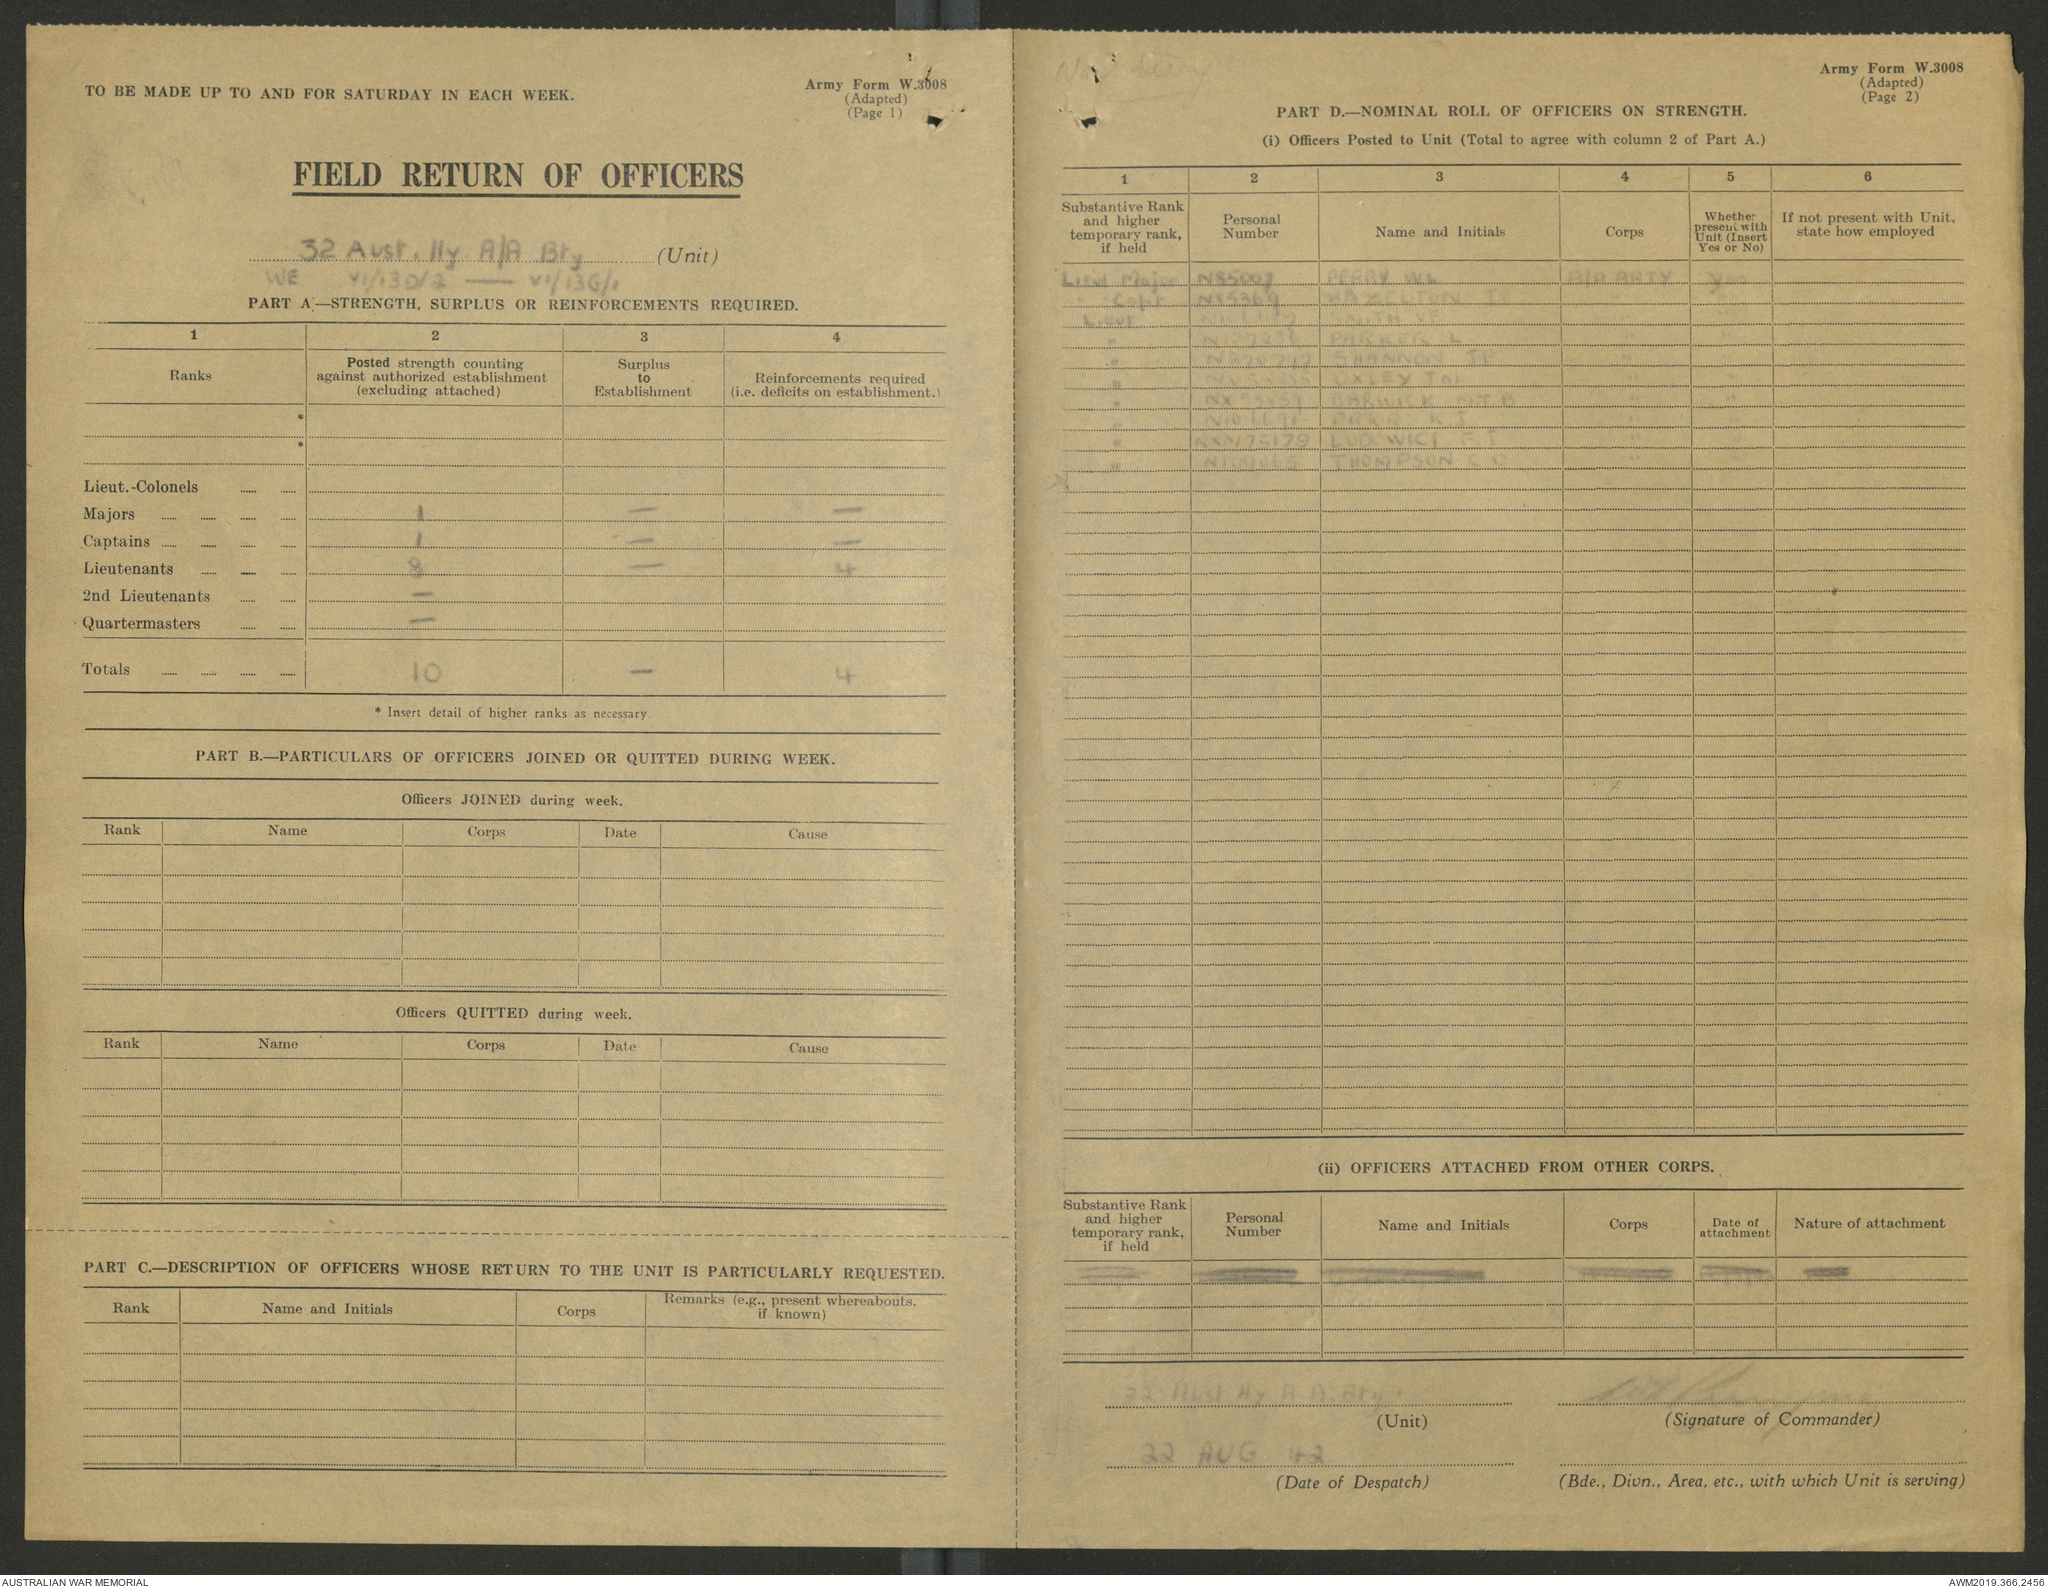 TO BE MADE UP TO AND FOR SATURDAY IN EACH WEEK.
Army Form W.3008
(Adapted)
(Page 1)
FIELD RETURN OF OFFICERS
32 Aust. Hy A/A Bty (Unit)
WE VI/13D/2 — VI/13G/1
PART A—STRENGTH, SURPLUS OR REINFORCEMENTS REQUIRED.
1 2 3 4
Ranks
Posted strength counting
against authorized establishment
(excluding attached)
Surplus
to
Establishment
Reinforcements required
(i.e. deficits on establishment.)
*
*
Lieut.-Colonels
Majors 1 — —
Captains 1 — —
Lieutenants 8 — 4
2nd Lieutenants —
Quartermasters —
Totals 10 — 4
* Insert detail of higher ranks as necessary.
PART B.—PARTICULARS OF OFFICERS JOINED OR QUITTED DURING WEEK.
Officers JOINED during week.
Rank Name Corps Date Cause
Officers QUITTED during week.
Rank Name Corps Date Cause
PART C.—DESCRIPTION OF OFFICERS WHOSE RETURN TO THE UNIT IS PARTICULARLY REQUESTED.
Rank Name and Initials Corps Remarks (e.g., present whereabouts,
if known)
Army Form W.3008
(Adapted)
(Page 2)
PART D.—NOMINAL ROLL OF OFFICERS ON STRENGTH.
(i) Officers Posted to Unit (Total to agree with column 2 of Part A.)
1 2 3 4 5 6
Substantive Rank
and higher
temporary rank,
if held
Personal
Number
Name and Initials
Corps
Whether
present with
Unit (Insert
Yes or No)
If not present with Unit,
state how employed
Lieut Major PERRY WL A/A ARTY Yes
" Capt HAZELTON " "
Lieut SMITH VF " "
" PARKER L " "
" SHANNON JP " "
" OXLEY " "
" BARWICK " "
" " "
" LUDOWICI F J " "
" THOMPSON C " "
(ii) OFFICERS ATTACHED FROM OTHER CORPS.
Substantive Rank
and higher
temporary rank,
if held
Personal
Number
Name and Initials
Corps
Date of
attachment
Nature of attachment
32 Aust Hy A.A. Bty.
(Unit)
(Signature of Commander)
22 AUG 42
(Date of Despatch)
(Bde., Divn., Area, etc., with which Unit is serving)
AUSTRALIAN WAR MEMORIAL
AWM2019.366.2456